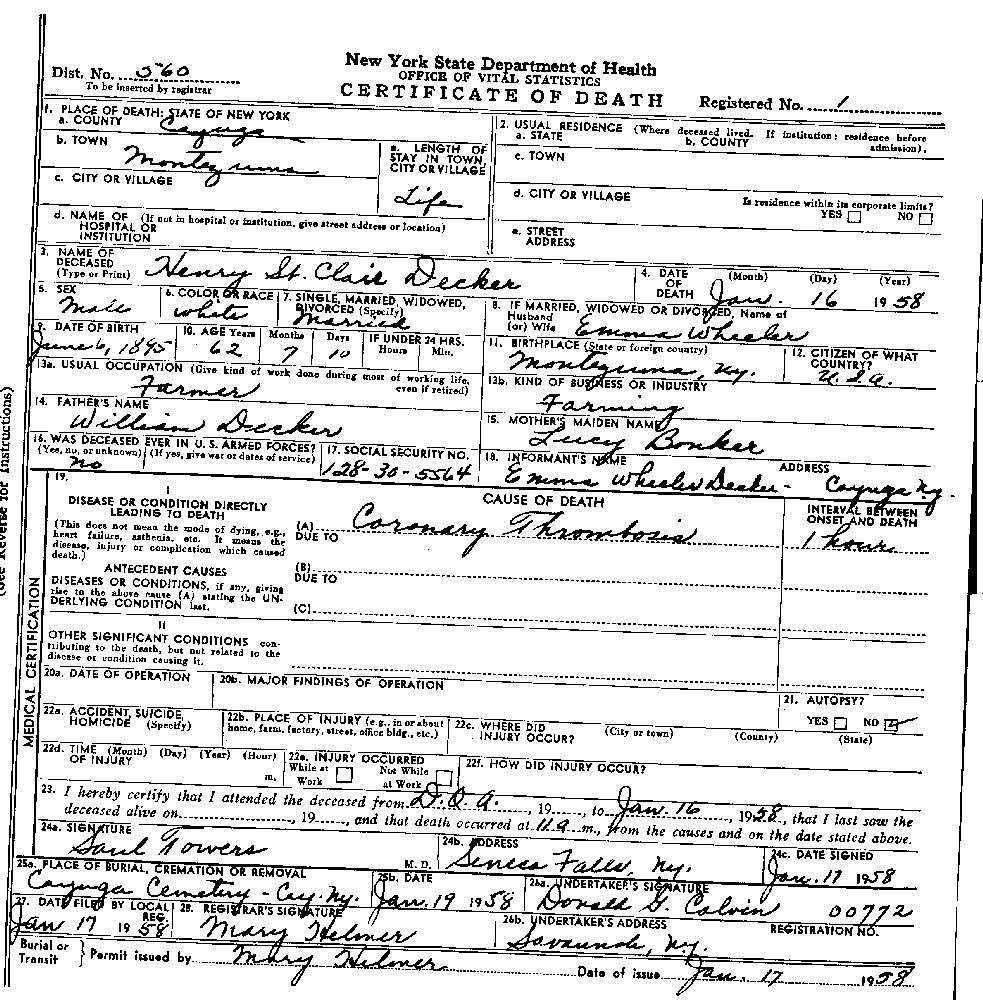 New York State Department of Health
OFFICE OF VITAL STATISTICS
CERTIFICATE OF DEATH
Dist. No. 560
To be inserted by registrar
Registered No. 1
1. PLACE OF DEATH: STATE OF NEW YORK
a. COUNTY Cayuga
b. TOWN Montezuma
e. LENGTH OF STAY IN TOWN, CITY OR VILLAGE Life
c. CITY OR VILLAGE
d. NAME OF HOSPITAL OR INSTITUTION (If not in hospital or institution, give street address or location)
2. USUAL RESIDENCE (Where deceased lived. If institution: residence before admission).
a. STATE b. COUNTY
c. TOWN
d. CITY OR VILLAGE Is residence within its corporate limits? YES NO
e. STREET ADDRESS
3. NAME OF DECEASED (Type or Print) Henry St. Clair Decker
4. DATE OF DEATH (Month) (Day) (Year) Jan. 16 1958
5. SEX Male
6. COLOR OR RACE white
7. SINGLE, MARRIED, WIDOWED, DIVORCED (Specify) Married
8. IF MARRIED, WIDOWED OR DIVORCED, Name of Husband (or) Wife Emma Wheeler
9. DATE OF BIRTH June 6, 1895
10. AGE Years 62 Months 7 Days 10 IF UNDER 24 HRS. Hours Min.
11. BIRTHPLACE (State or foreign country) Montezuma, Ny.
12. CITIZEN OF WHAT COUNTRY? U.S.A.
13a. USUAL OCCUPATION (Give kind of work done during most of working life, even if retired) Farmer
13b. KIND OF BUSINESS OR INDUSTRY Farming
14. FATHER'S NAME William Decker
15. MOTHER'S MAIDEN NAME Lucy Bonker
16. WAS DECEASED EVER IN U.S. ARMED FORCES? (Yes, no, or unknown) (If yes, give war or dates of service) no
17. SOCIAL SECURITY NO. 128-30-5564
18. INFORMANT'S NAME ADDRESS Emma Wheeler Decker - Cayuga Ny.
(See Reverse for Instructions)
MEDICAL CERTIFICATION
19. CAUSE OF DEATH
INTERVAL BETWEEN ONSET AND DEATH
I
DISEASE OR CONDITION DIRECTLY LEADING TO DEATH
(This does not mean the mode of dying, e.g., heart failure, asthenia, etc. It means the disease, injury or complication which caused death.)
(A) Coronary Thrombosis 1 hour
DUE TO
ANTECEDENT CAUSES
DISEASES OR CONDITIONS, if any, giving rise to the above cause (A) stating the UNDERLYING CONDITION last.
(B)
DUE TO
(C)
II
OTHER SIGNIFICANT CONDITIONS contributing to the death, but not related to the disease or condition causing it.
20a. DATE OF OPERATION
20b. MAJOR FINDINGS OF OPERATION
21. AUTOPSY? YES NO
22a. ACCIDENT, SUICIDE, HOMICIDE (Specify)
22b. PLACE OF INJURY (e.g., in or about home, farm, factory, street, office bldg., etc.)
22c. WHERE DID INJURY OCCUR? (City or town) (County) (State)
22d. TIME OF INJURY (Month) (Day) (Year) (Hour) m.
22e. INJURY OCCURRED While at Work Not While at Work
22f. HOW DID INJURY OCCUR?
23. I hereby certify that I attended the deceased from D.O.A. , 19 , to Jan. 16 , 1958, that I last saw the
deceased alive on , 19 , and that death occurred at 11 a m., from the causes and on the date stated above.
24a. SIGNATURE Saul Towers M.D.
24b. ADDRESS Seneca Falls, Ny.
24c. DATE SIGNED Jan. 17 1958
25a. PLACE OF BURIAL, CREMATION OR REMOVAL Cayuga Cemetery - Cay. Ny.
25b. DATE Jan. 19 1958
26a. UNDERTAKER'S SIGNATURE Donald G. Colvin 00772
REGISTRATION NO.
27. DATE FILED BY LOCAL REG. Jan 17 1958
28. REGISTRAR'S SIGNATURE Mary Helmer
26b. UNDERTAKER'S ADDRESS Savannah, Ny.
Burial or Transit } Permit issued by Mary Helmer Date of issue Jan. 17 1958